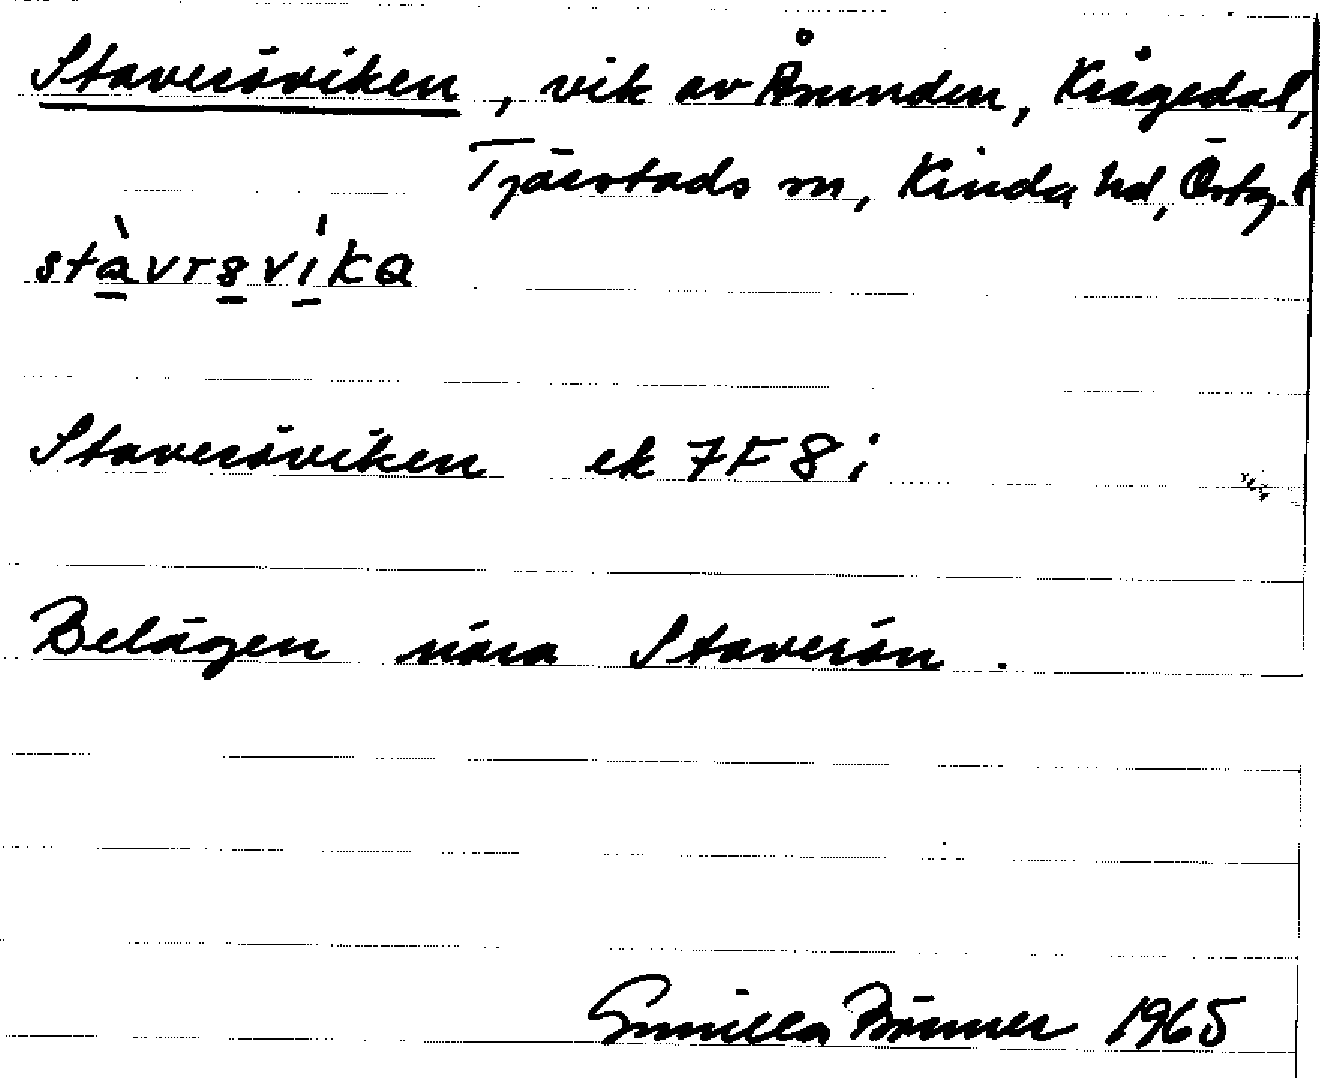 Staveröviken, vik av Åsunden, Krågedal,
Tjärstads sn, Kinda hd, Östg.
stàvrsvíka
Staveröviken ek 7F8i
Belägen nära Staverön.
Gunilla 1965